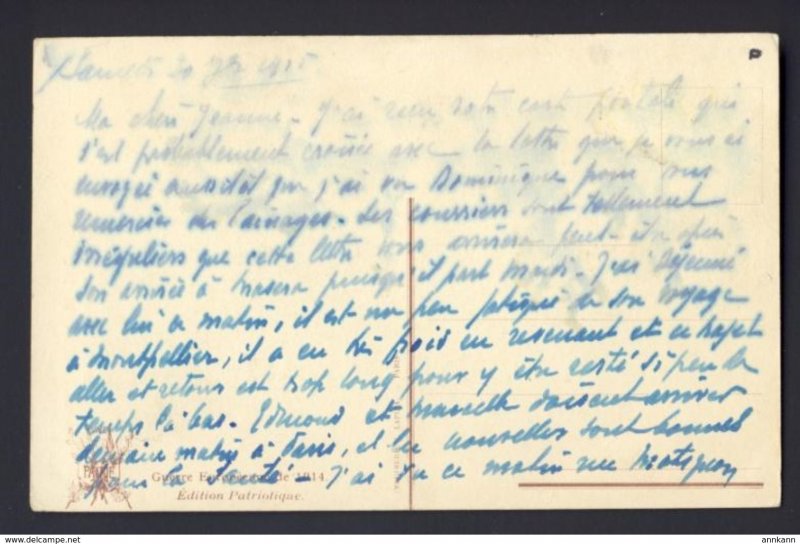 Samedi 30 1915
Ma chère Jeanne - J'ai reçu votre carte postale qui
s'est probablement croisée avec la lettre que je vous ai
envoyée aussitôt que j'ai vu Dominique pour vous
remercier des lainages - Les courriers sont tellement
irréguliers que cette lettre vous arrivera peut-être après
son arrivée à puisqu'il part mardi - J'ai déjeuné
avec lui ce matin, il est un peu fatigué de son voyage
à Montpellier, il a eu très froid en revenant et ce trajet
aller et retour est trop long pour y être resté si peu de
temps là bas. Edmond et Marcelle doivent arriver
demain matin à Paris, et les nouvelles sont bonnes
pour la santé - J'ai vu ce matin rue Matignon
Guerre Européenne de 1914
Edition Patriotique.
PARIS
a
annkann